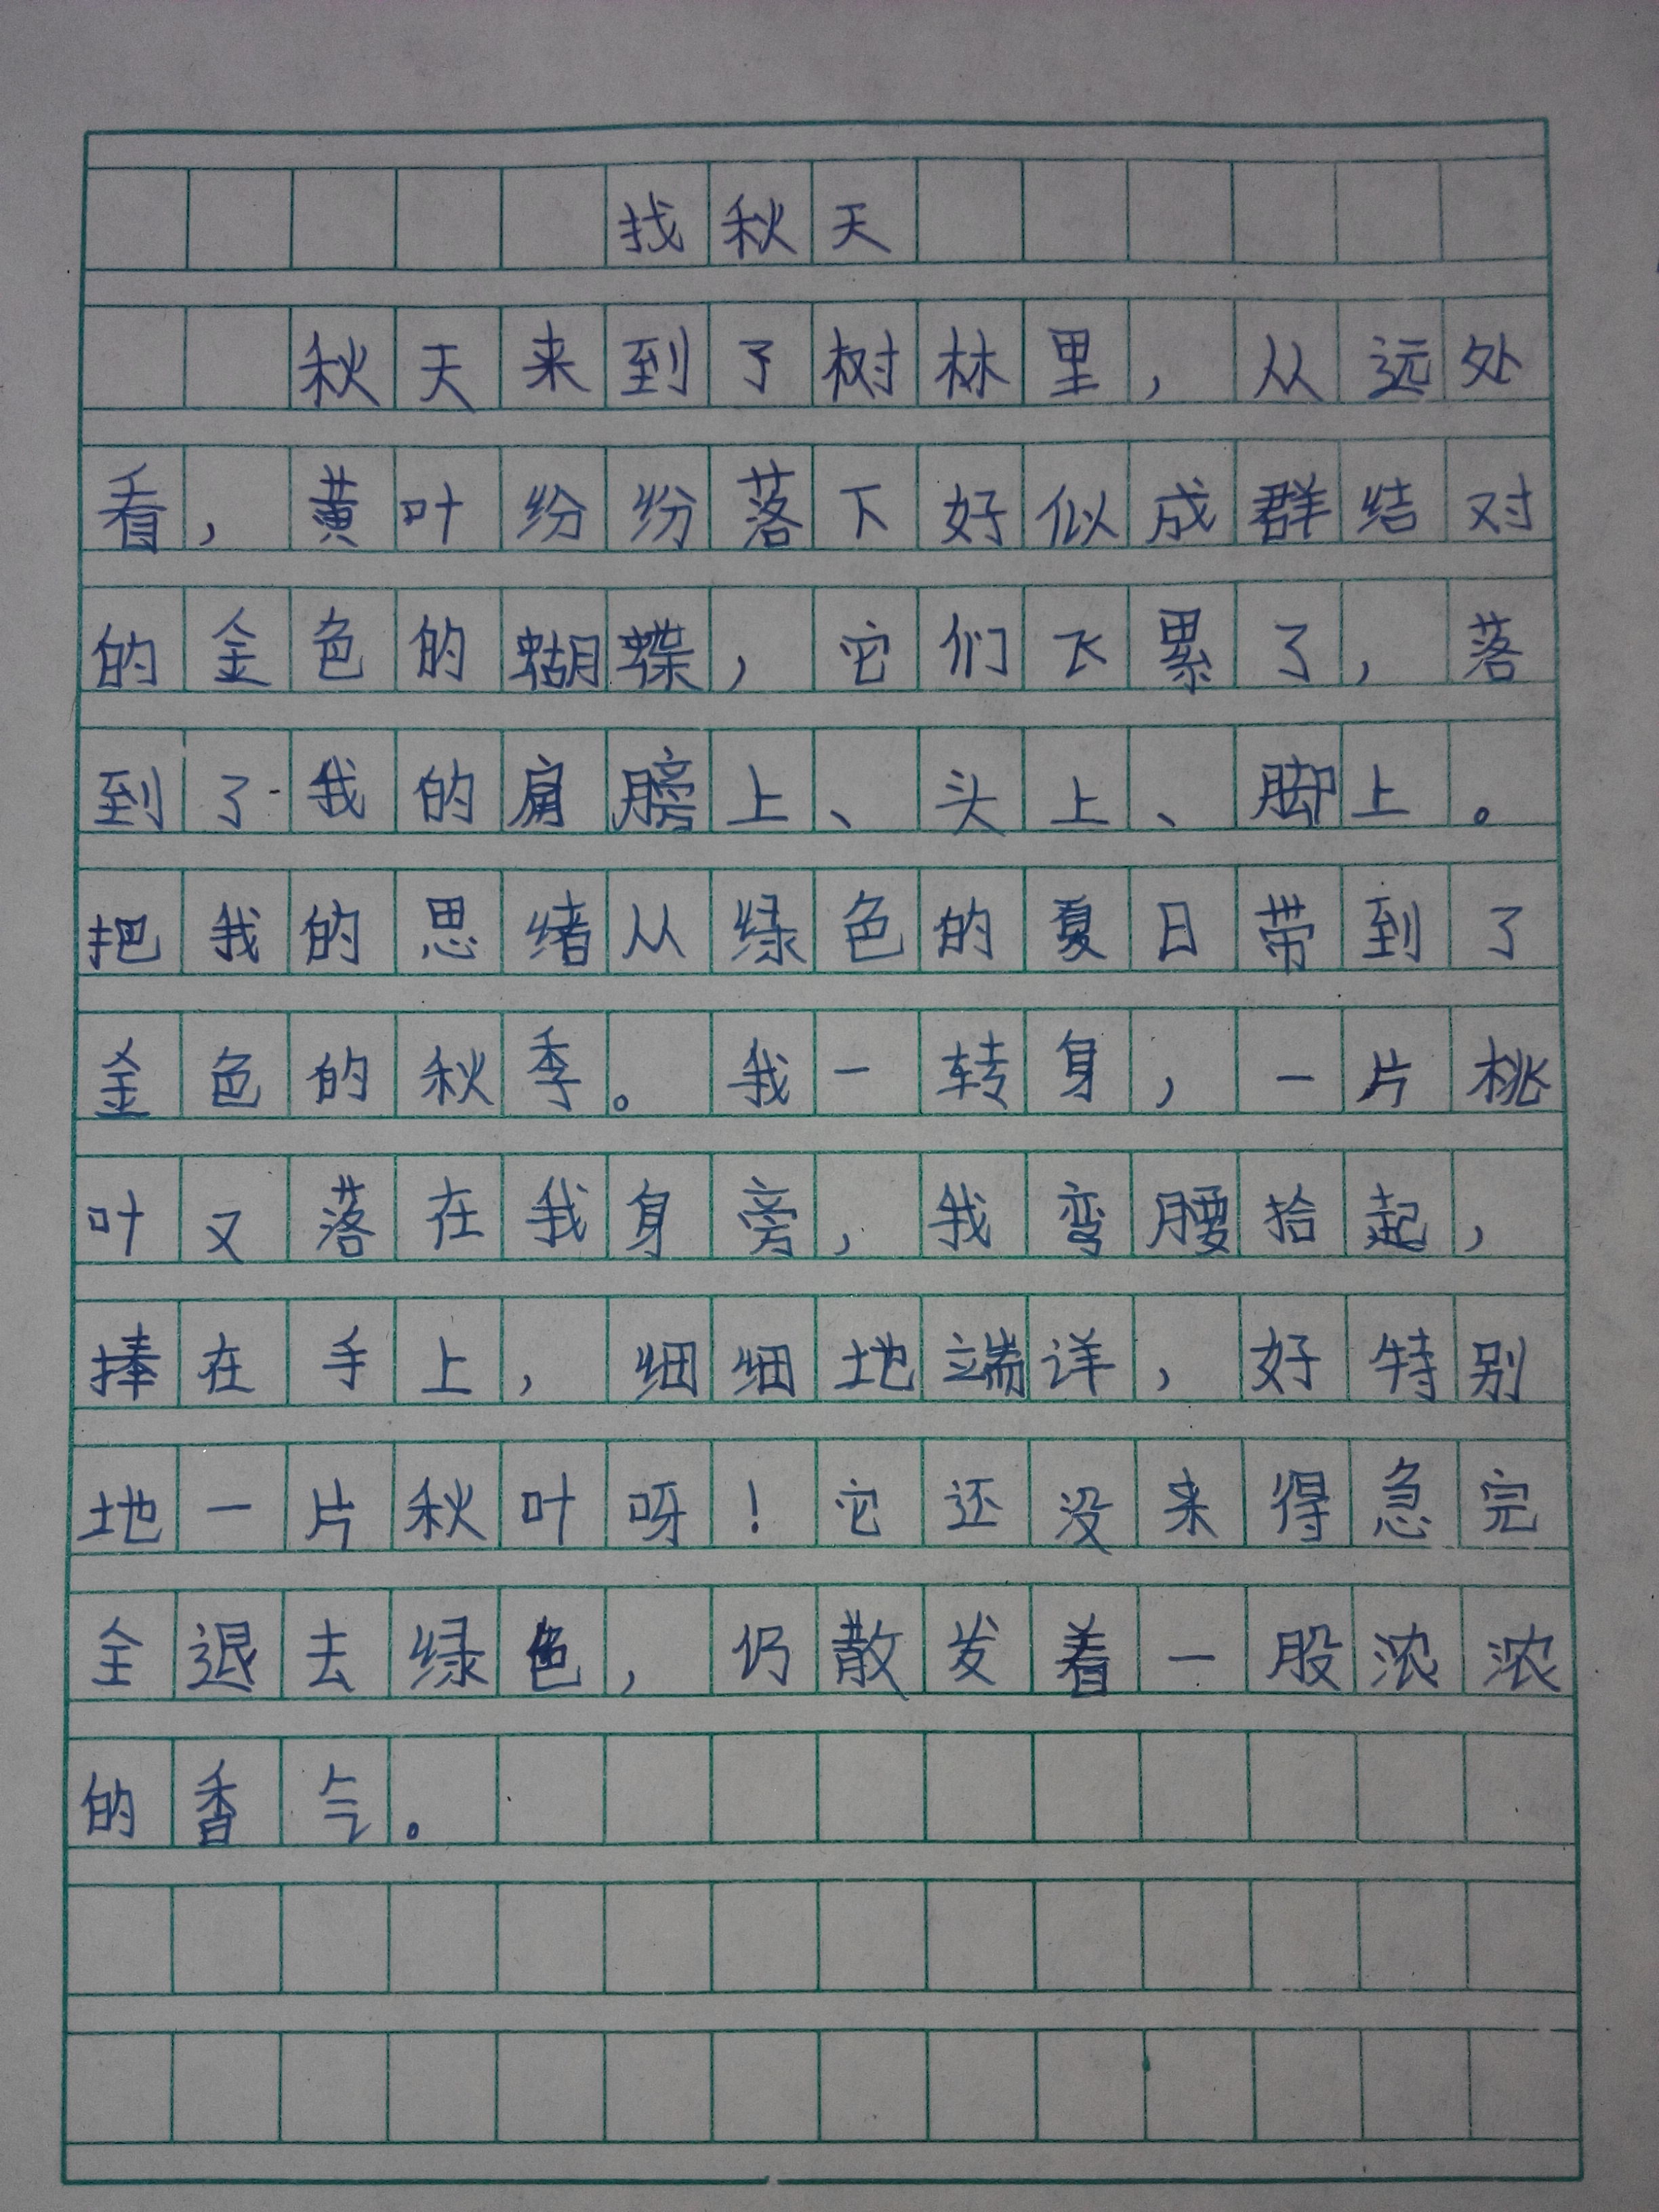 找秋天
秋天来到了树林里，从远处
看，黄叶纷纷落下好似成群结对
的金色的蝴蝶，它们飞累了，落
到了我的肩膀上、头上、脚上。
把我的思绪从绿色的夏日带到了
金色的秋季。我一转身，一片桃
叶又落在我身旁，我弯腰拾起，
捧在手上，细细地端详，好特别
地一片秋叶呀！它还没来得急完
全退去绿色，仍散发着一股浓浓
的香气。